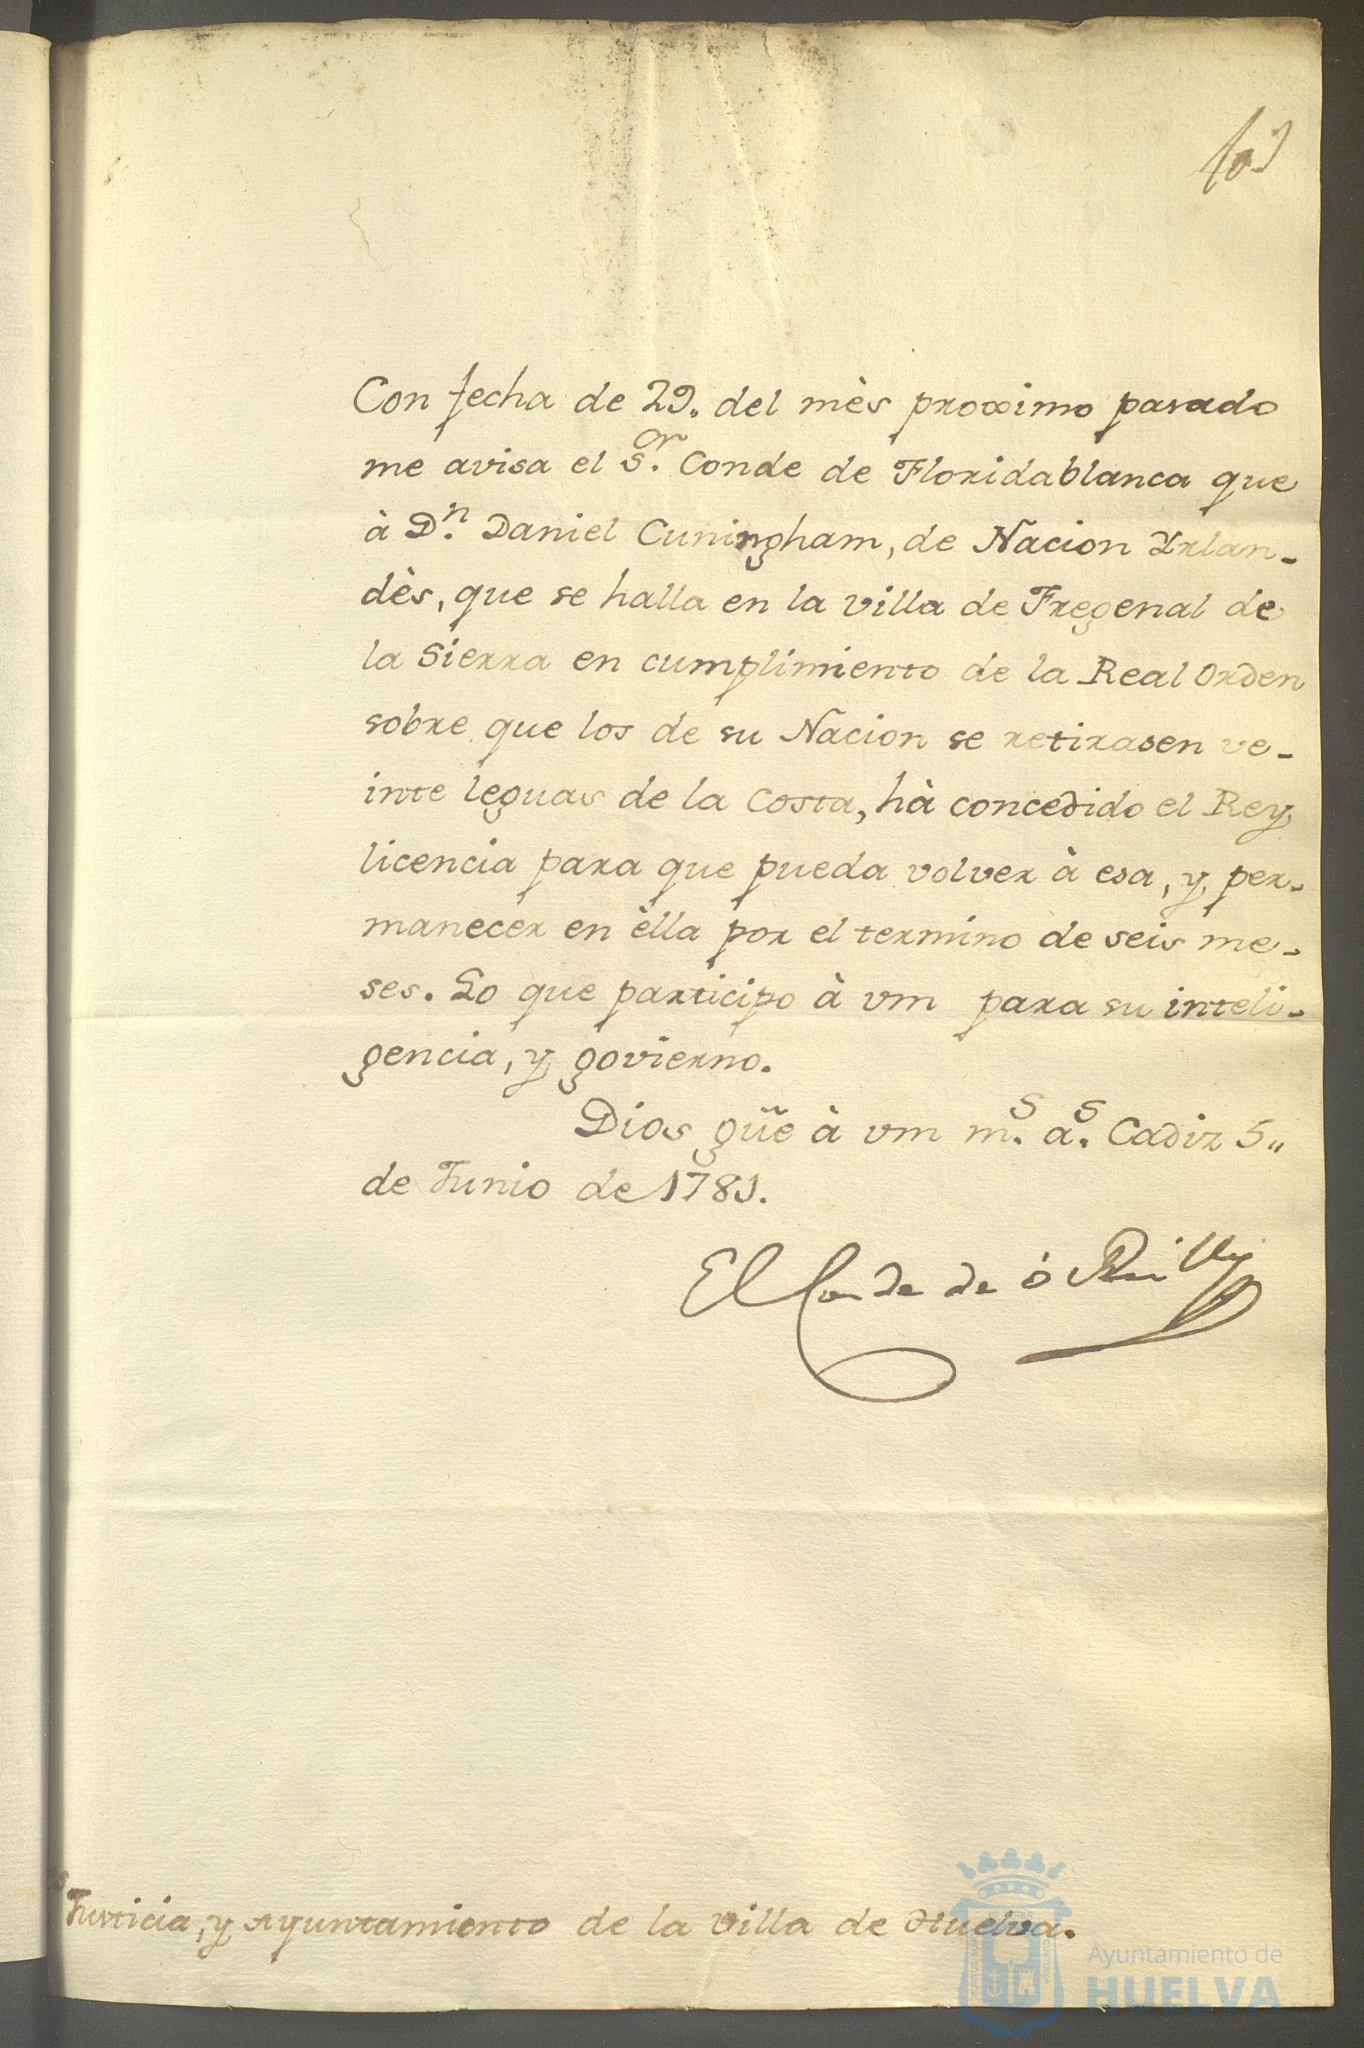 103
Con fecha de 29. del mès proximo pasado
me avisa el Sor. Conde de Floridablanca que
à Dn. Daniel Cuningham, de Nacion Yrlan-
dès, que se halla en la villa de Fregenal de
la Sierra en cumplimiento de la Real Orden
sobre que los de su Nacion se retirasen ve-
inte leguas de la Costa, hà concedido el Rey
licencia para que pueda volver à esa, y per-
manecer en èlla por el termino de seis me-
ses. Lo que participo à vm para su inteli-
gencia, y govierno.
Dios güe à vm ms. as. Cadiz 5"
de Junio de 1781.
El Conde de ó Reilly
Justicia, y Ayuntamiento de la Villa de Huelva.
Ayuntamiento de
HUELVA